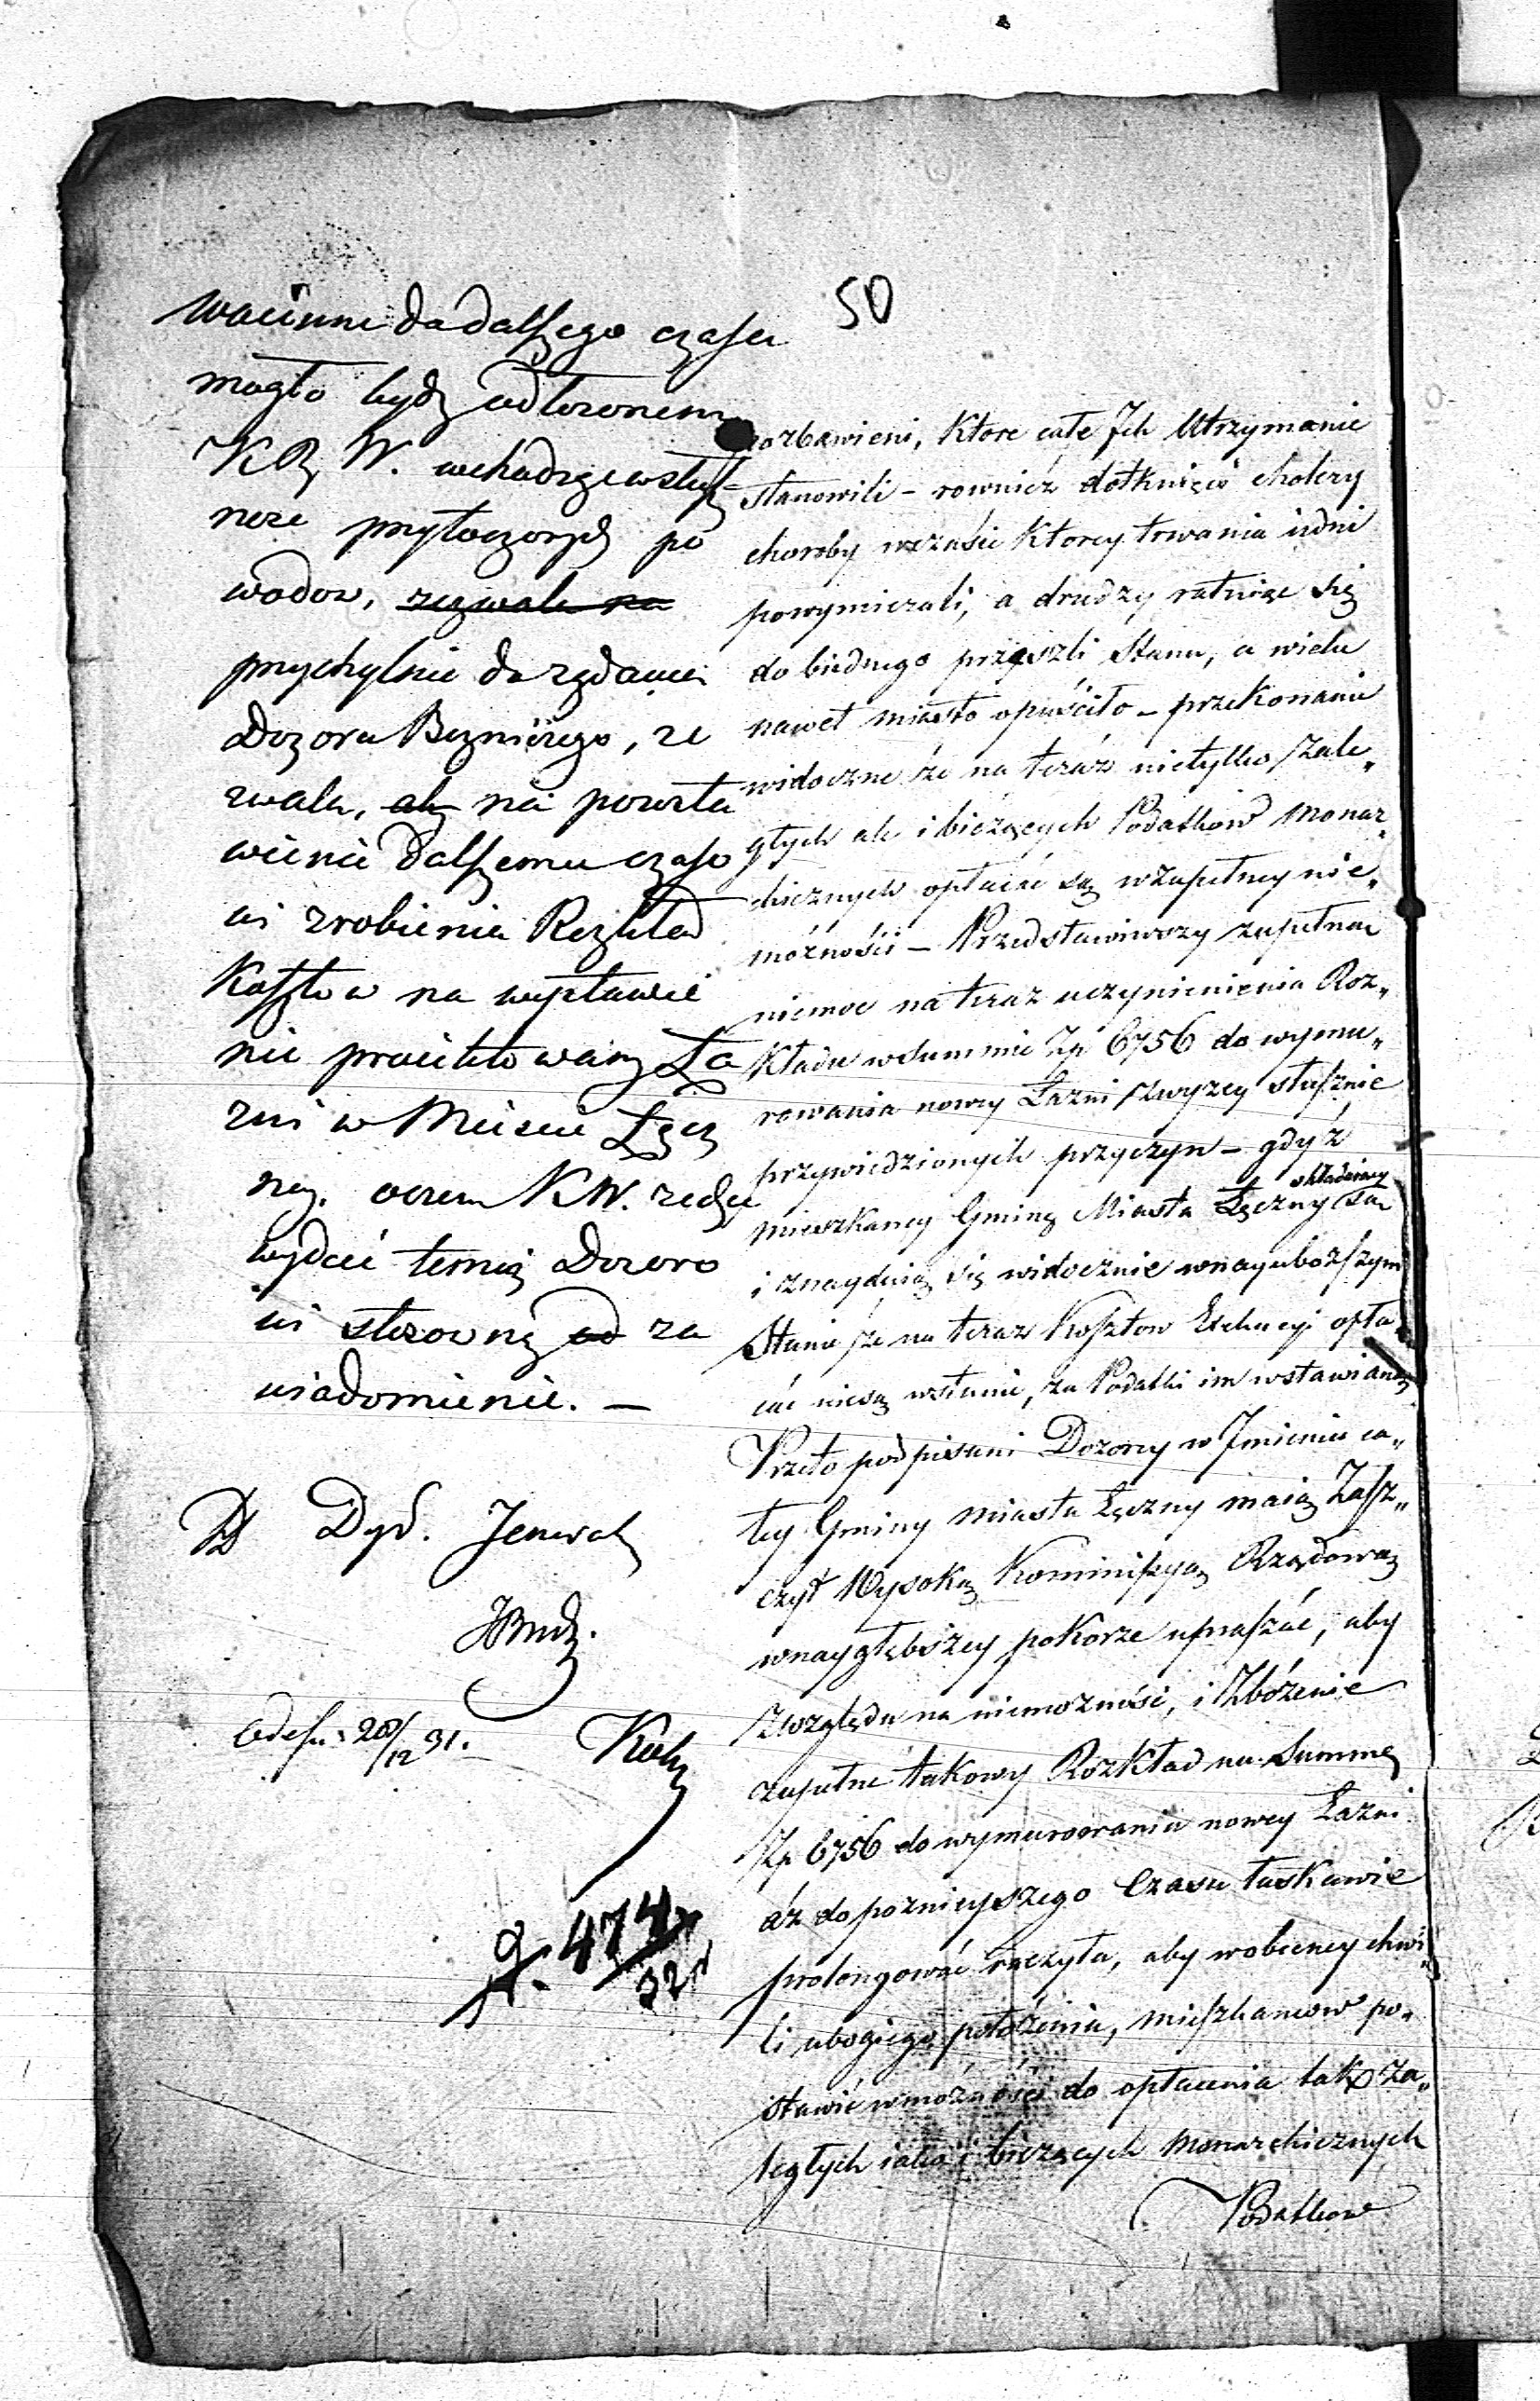 50
wacinne do dalszego czasu
mogło bydź odłożonem
K R W. wchodząc w słusz-
ność przytoczonych po
wodow, zezwala na
przychylnie do żądania
Dozoru Bożniczego, ze
zwala, aby na pozosta
wienie dalszemu czaso
wi zrobienia Rozkład
Kosztow na wystawie
nie proiektowany Ła
zni w Mieście Łęcz
ney. oczem KW. zechce
wydać temuż Dozoro
wi stosowną od za
wiadomienie. —
Dyr. Jeneral
odesł: 28/12 31.
474
32
pozbawieni, Ktore całe Jch Utrzymanie
Stanowili – rownież dotknięci cholery
choroby wczasie Ktorey trwania iedni
powymierali, a drudzy ratuiąc się
do biednego przeszli Stanu, a wielu
nawet miasto opuściło – przekonanie
widoczne że na teráz nietylko zale„
głych ale i bieżących Podatkow Monar„
chicznych opłacać są wzupełney nie„
możności – Przedstawiwszy zupełną
niemoc na teraz uczynienienia Roz„
Kładu wsummie Złp 6756 do wymu„
rowania nowey Łazni zwyżey słusznie
przywiedzionych przyczyn – gdyż
składaiący
mieszkancy Gminę Miasta Łęczny są
i znayduią się widocznie wnayuboższym
Stanie że na teraz Kosztow Exekucyi opła„
cać niesą wstanie, za Podatki im wstawianą
Przeto podpisani Dozorcy w Jmieniu ca„
łey Gminy miasta Łęczny maią Zasz„
czyt Wysoką Kommissyą Rządową
wnaygłębszey poKorze upraszać, aby
zwzględu na niemożność, i Zbóżenie
zupełne takowy Rozkład na Summę
Złp 6756 do wymurowania nowey Łazni
áż do poznieyszego Czasu łaskawie
prolongować raczyła, aby wobecney chwi„
li ubogiego położenia, mieszkancow po„
stawić wmożności do opłacenia tak za„
ległych iako i bieżących Monarchicznych
Podatkow